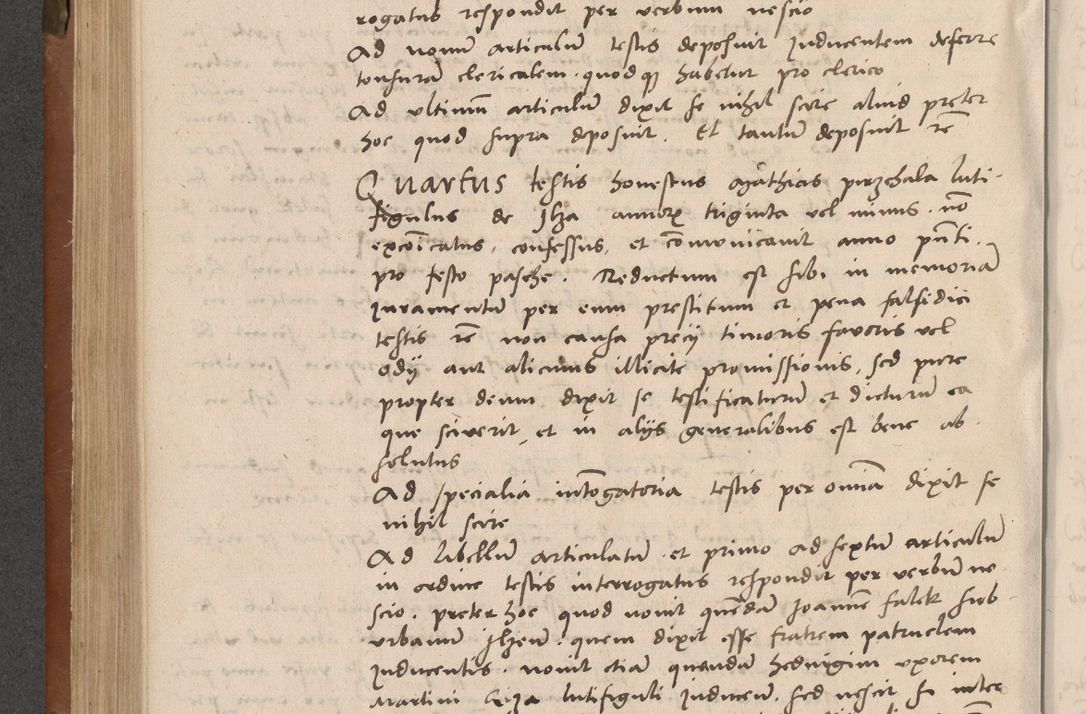 rogatus respondit per verbum nescio
Ad nonum articulum testis deposuit Inducentem deferre
tonsuram clericalem quodqꝫ habetur pro clerico
Ad ultimum articulum dixit se nihil scire aliud preter
hoc quod supra deposuit. Et tantum deposuit rē
Quartus testis honestus Mathias pirzchala luti-
figulus de Ilza annorꝝ triginta vel minus. nō
excōicatus, confessus, et cōmunicavit anno pn̄ti
pro festo pasche. Reductum est sibi in memoriā
Iuramentū per eum prestitum et pena falsidici
testis rē non causa precij timoris favoris vel
odij aut alicuius illicite promissionis, sed pure
propter deum dixit se testificaturū et dicturū ea
que sciverit, et in alijs generalibus est bene ab
solutus
Ad specialia intōgatoria testis per omnia dixit se
nihil scire
Ad libellū articulatū et primo ad sextū articulū
in ordine testis interrogatus respondit per verbū ne
scio. preter hoc quod novit quendā Joannē falek sub
urbanum Ilzeñ. quem dixit esse fratrem patruelem
Inducentis. novit etiā quandā hedvigim uxorem
Martini lutifiguli Inducen̄, sed nescit si inter